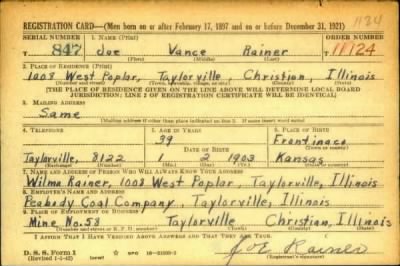 1124
REGISTRATION CARD—(Men born on or after February 17, 1897 and on or before December 31, 1921)
SERIAL NUMBER 1. NAME (Print) ORDER NUMBER
T 847 Joe Vance Rainer 11124
(First) (Middle) (Last)
2. PLACE OF RESIDENCE (Print)
1008 West Poplar, Taylorville, Christian, Illinois
(Number and street) (Town, township, village, or city) (County) (State)
[THE PLACE OF RESIDENCE GIVEN ON THE LINE ABOVE WILL DETERMINE LOCAL BOARD
JURISDICTION; LINE 2 OF REGISTRATION CERTIFICATE WILL BE IDENTICAL]
3. MAILING ADDRESS
Same
[Mailing address if other than place indicated on line 2. If same insert word same]
4. TELEPHONE 5. AGE IN YEARS 6. PLACE OF BIRTH
39 Frontinac
DATE OF BIRTH
Taylorville, 8122 1 2 1903 Kansas
(Exchange) (Number) (Mo.) (Day) (Yr.) (State or country)
7. NAME AND ADDRESS OF PERSON WHO WILL ALWAYS KNOW YOUR ADDRESS
Wilma Rainer, 1008 West Poplar, Taylorville, Illinois
8. EMPLOYER'S NAME AND ADDRESS
Peabody Coal Company, Taylorville, Illinois
9. PLACE OF EMPLOYMENT OR BUSINESS
Mine No. 58 Taylorville Christian, Illinois
(Number and street or R. F. D. number) (Town) (County) (State)
I AFFIRM THAT I HAVE VERIFIED ABOVE ANSWERS AND THAT THEY ARE TRUE.
D. S. S. Form 1
(Revised 1-1-42) (over)
Joe Rainer